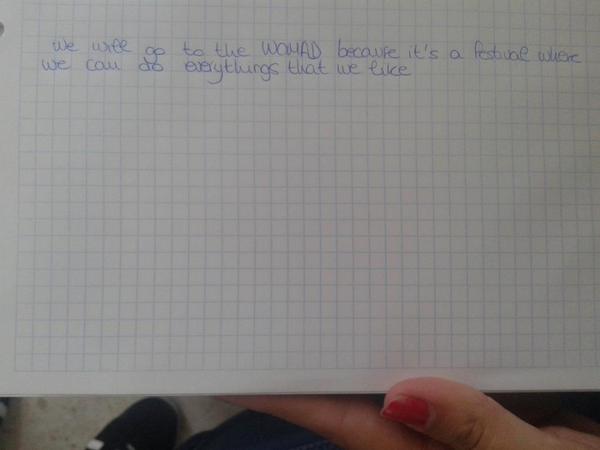 we will go to the WOMAD because it's a festival where
we can do everythings that we like